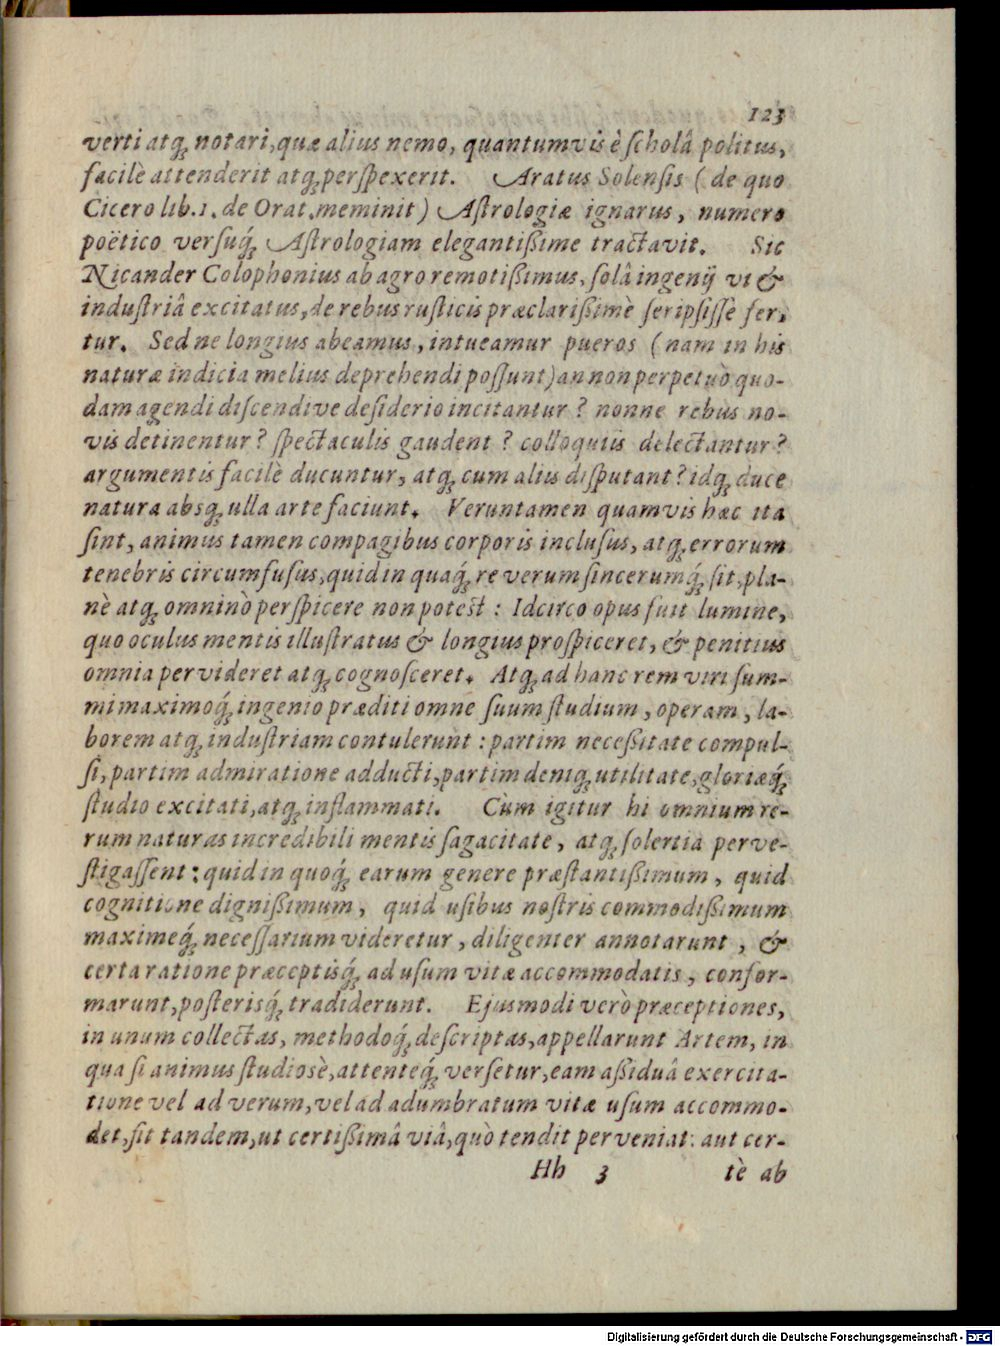 123
verti atq; notari, quæ alius nemo, quantumvis è ſcholâ politus,
facilè attenderit atq; perſpexerit. Aratus Solenſis (de quo
Cicero lib. 1. de Orat. meminit) Aſtrologiæ ignarus, numero
poëtico verſuq́; Aſtrologiam elegantißime tractavit. Sic
Nicander Colophonius ab agro remotißimus, ſolâ ingenij vi &
induſtriâ excitatus, de rebus ruſticis præclarißimè ſcripſiſſe fer.
tur. Sed ne longius abeamus, intueamur pueros (nam in his
naturæ indicia melius deprehendi poſſunt) an non perpetuò quo-
dam agendi diſcendive deſiderio incitantur? nonne rebus no-
vis detinentur? ſpectaculis gaudent? colloquiis delectantur?
argumentis facilè ducuntur, atq; cum aliis diſputant? idq; duce
natura absq; ulla arte faciunt. Veruntamen quamvis hæc ita
ſint, animus tamen compagibus corporis incluſus, atq; errorum
tenebris circumfuſus, quid in quaq́; re verum ſincerumq́; ſit, pla-
nè atq; omninò perſpicere non potest: Idcirco opus fuit lumine,
quo oculus mentis illuſtratus & longius proſpiceret, & penitius
omnia pervideret atq; cognoſceret. Atq; ad hanc rem viri ſum-
mi maximoq́; ingenio præditi omne ſuum ſtudium, operam, la-
borem atq; induſtriam contulerunt: partim neceßitate compul-
ſi, partim admiratione adducti, partim deniq; utilitate, gloriæq́;
ſtudio excitati, atq; inflammati. Cùm igitur hi omnium re-
rum naturas incredibili mentis ſagacitate, atq; ſolertia perve-
ſtigaſſent: quid in quoq́; earum genere præſtantißimum, quid
cognitione dignißimum, quid uſibus noſtris commodißimum
maximeq́; neceſſarium videretur, diligenter annotarunt, &
certa ratione præceptisq́; ad uſum vitæ accommodatis, confor-
marunt, poſterisq́; tradiderunt. Ejusmodi verò præceptiones,
in unum collectas, methodoq́; deſcriptas, appellarunt Artem, in
qua ſi animus ſtudiosè, attenteq́; verſetur, eam aßiduâ exercita-
tione vel ad verum, vel ad adumbratum vitæ uſum accommo-
det, fit tandem, ut certißimâ viâ, quò tendit perveniat: aut cer-
Hh 3 tè ab
Digitalisierung gefördert durch die Deutsche Forschungsgemeinschaft - DFG